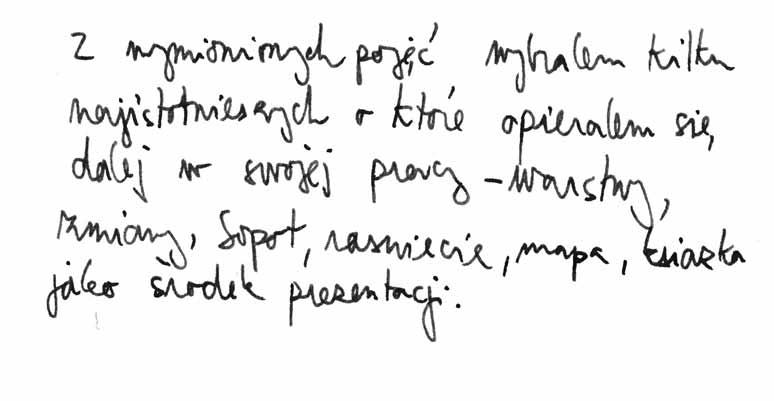 Z wymionionych pojęć wybrałem kilku
najistotniejszych o które opierałem się,
dalej w swojej pracy - warstwy,
zmiany, Sopot, rasmiecie, mapa, książka
jako środek prezentacji.